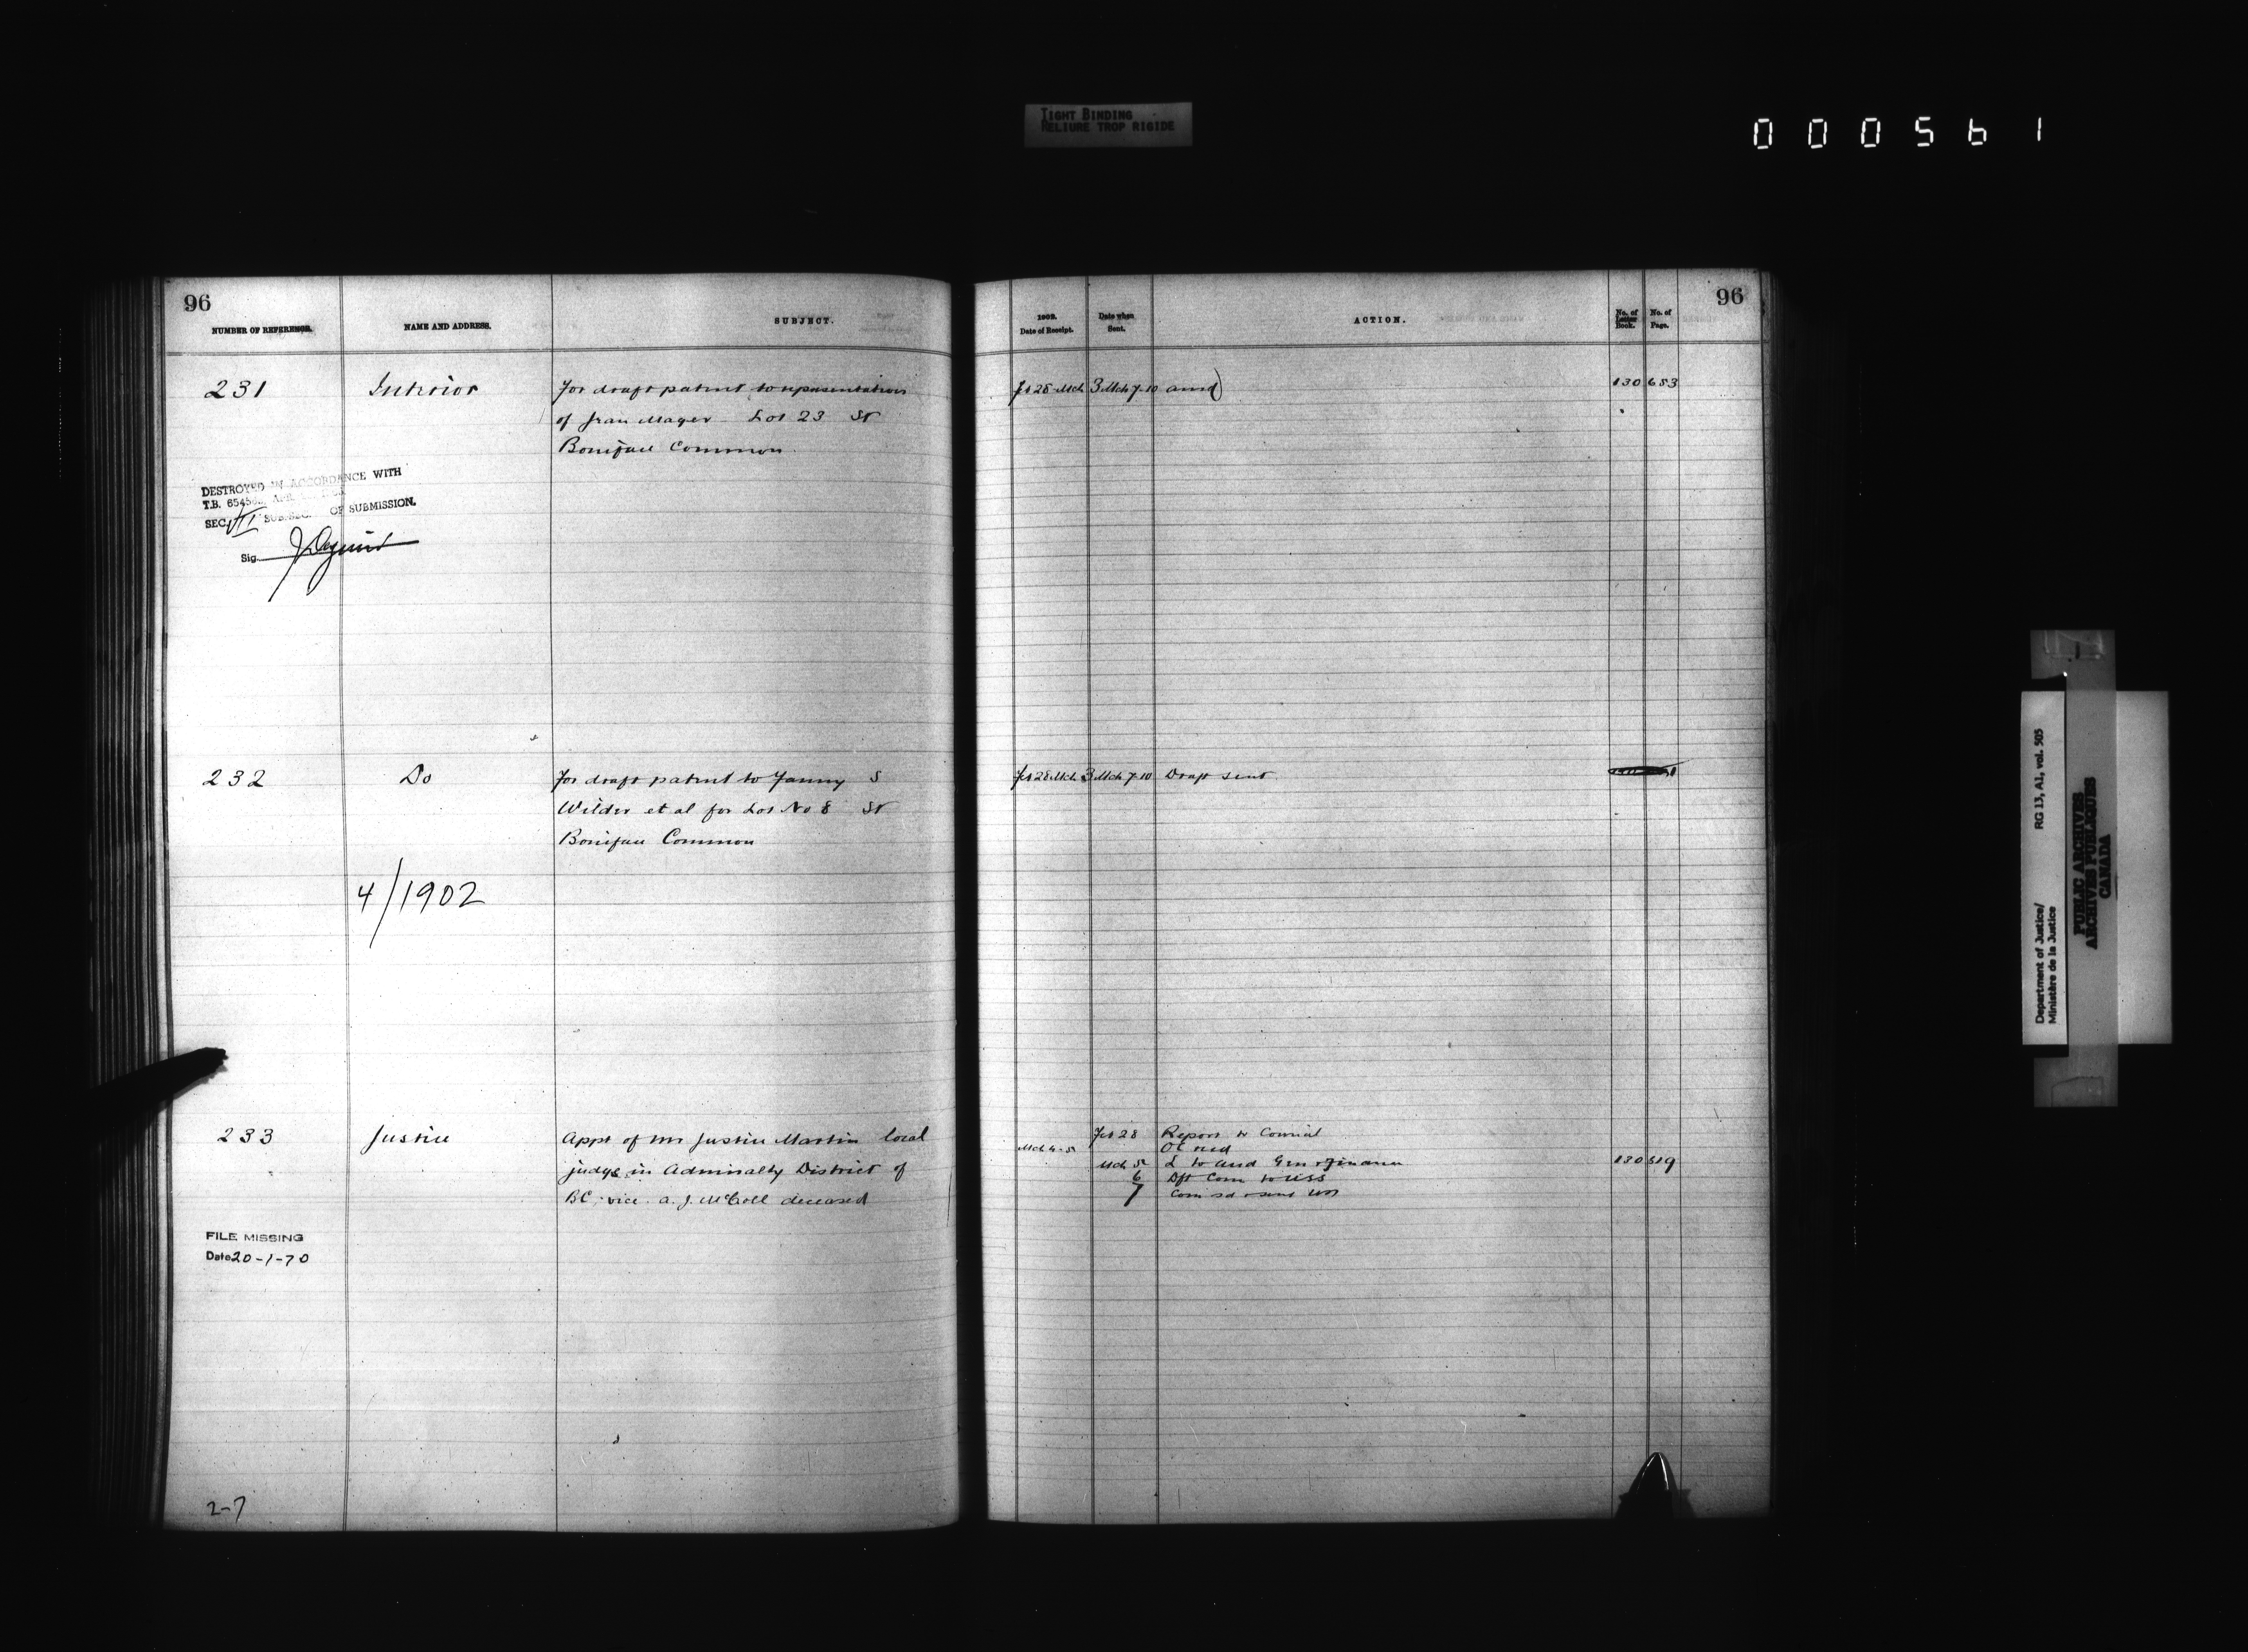 TIGHT BINDING
RELIURE TROP RIGIDE
000561
96
NUMBER OF REFERENCE.
NAME AND ADDRESS.
SUBJECT.
231
Interior
For draft patent to representatives
of Jean Mager Lot 23 St
Boniface Common
DESTROYED IN ACCORDANCE WITH
T.B.
SEC. VII SUB.SEC. OF SUBMISSION.
Sig.
232
Do
For draft patent to Fanny S
Wilder et al for Lot No 8 St
Boniface Common
4/1902
233
Justice
Appt of Mr Justice Martin local
judge in Admiralty District of
BC, vice A. J. McColl deceased
FILE MISSING
Date 20-1-70
2-7
96
1902.
Date of Receipt.
Date when
Sent.
ACTION.
No. of
Letter
Book.
No. of
Page.
Feb 28 - Mch 3 Mch 7-10 130 653
Feb 28 Mch 3 Mch 7-10 Draft sent
Feb 28 Report to Council
Mch 4-5 OC recd
Mch 5 L to Aud Gen & Finance 130 519
6 Dft Com to USS
7 Com sd & sent
Department of Justice/
Ministère de la Justice
RG 13, A1, vol. 505
PUBLIC ARCHIVES
ARCHIVES PUBLIQUES
CANADA